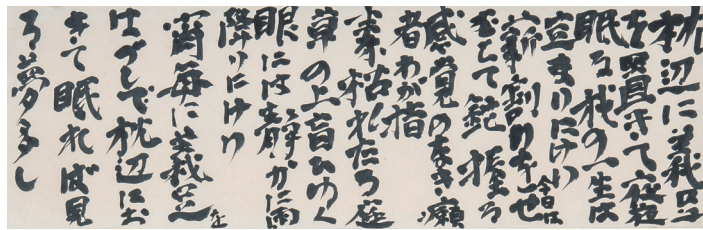 枕辺に義足
を置きて夜毎
眠る我の一生は
定まりにけり 今日は
薪割り
て鉈握る
感覚のなき癩
者わが指
枯れたる庭
草の上盲ひゆく
眼には静かに雨
降りにけり
宵毎に義足を
はづして枕辺にお
きて眠れば見
る夢多し